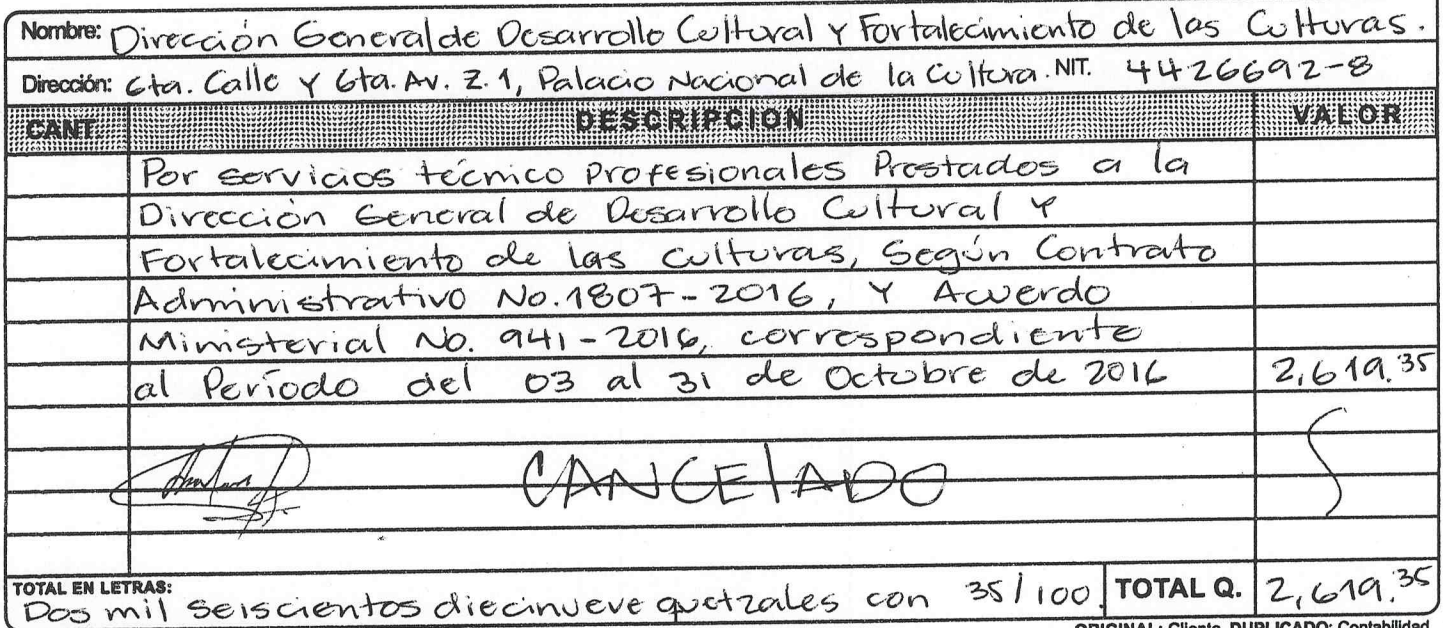 Nombre: Dirección General de Desarrollo Cultural y Fortalecimiento de las Culturas.
Dirección: 6ta. Calle y 6ta. Av. Z. 1, Palacio Nacional de la Cultura. NIT. 4426692-8
CANT. DESCRIPCION VALOR
Por servicios técnico Profesionales Prestados a la
Dirección General de Desarrollo Cultural Y
Fortalecimiento de las culturas, Según Contrato
Administrativo No. 1807-2016, Y Acuerdo
Ministerial No. 941-2016, correspondiente
al Período del 03 al 31 de Octubre de 2016 2,619.35
CANCELADO
TOTAL EN LETRAS:
Dos mil seiscientos diecinueve quetzales con 35/100. TOTAL Q. 2,619.35
ORIGINAL: Cliente DUPLICADO: Contabilidad